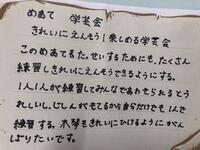 めあて 学芸会
きれいにえんそう!楽しめる学芸会
このめあてをたっせいするためにも、たくさん
練習しきれいにえんそうできるようにする。
1人1人が練習してみんなであわせられるとう
れしいし、じしんがもてるから自分だけでも1人で
練習する。木琴もきれいにひけるように がん
ばりたいです。